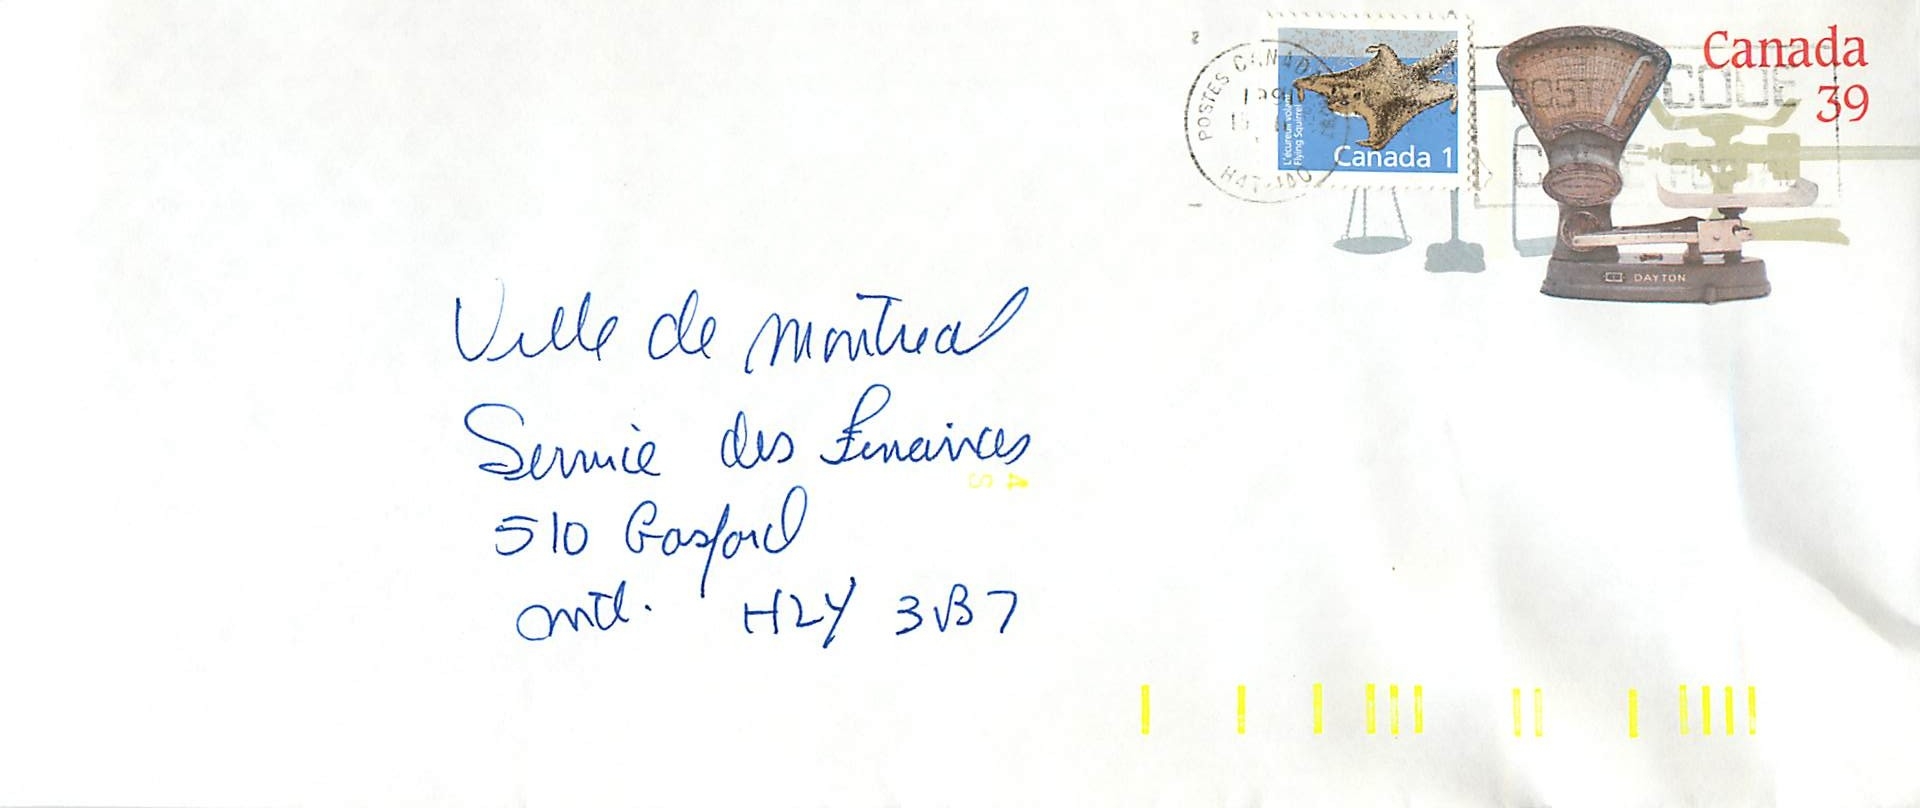 Canada
39
POSTES CANADA
H4T-1A0
L'écureuil volant
Flying Squirrel
Canada 1
POSTAL CODE
CODE POSTAL
DAYTON
Ville de Montreal
Service des Finances
510 Gosford
Mtl. H2Y 3B7